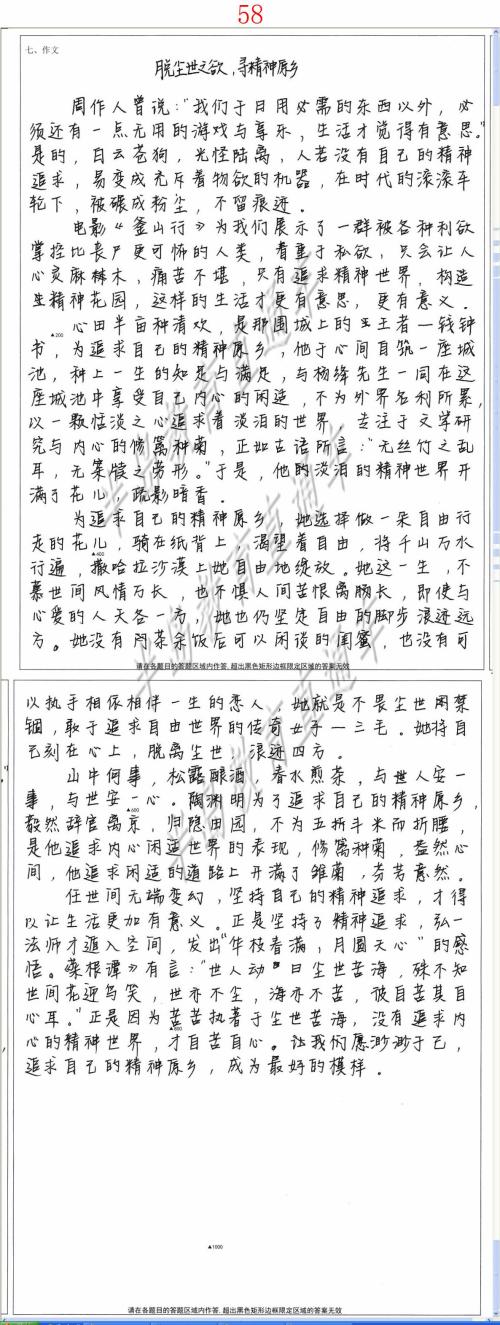 58
七、作文
脱尘世之欲,寻精神原乡
周作人曾说:“我们于日用必需的东西以外,必
须还有一点无用的游戏与享乐,生活才觉得有意思。”
是的,白云苍狗,光怪陆离,人若没有自己的精神
追求,易变成充斥着物欲的机器,在时代的滚滚车
轮下,被碾成粉尘,不留痕迹。
电影《釜山行》为我们展示了一群被各种利欲
掌控比丧尸更可怖的人类,看重于私欲,只会让人
心灵麻木,痛苦不堪,只有追求精神世界,构造
生精神花园,这样的生活才更有意思,更有意义。
心田半亩种清欢,是那围城上的王者—钱钟
▲200
书,为追求自己的精神原乡,他于心间自筑一座城
池,种上一生的知足与满足,与杨绛先生一同在这
座城池中享受自己内心的闲适,不为外界名利所累,
以一颗恬淡之心追求着淡泊的世界,专注于文学研
究与内心的修篱种菊,正如古语所言:“无丝竹之乱
耳,无案牍之劳形。”于是,他的淡泊的精神世界开
满了花儿,疏影暗香。
为追求自己的精神原乡,她选择做一朵自由行
走的花儿,骑在纸背上,渴望着自由,将千山万水
▲400
行遍,撒哈拉沙漠上她自由地绽放。她这一生,不
慕世间风情万长,也不惧人间苦恨离肠长,即使与
心爱的人天各一方,她也仍坚定自由的脚步浪迹远
方。她没有门茶余饭后可以闲谈的闺蜜,也没有可
请在各题目的答题区域内作答,超出黑色矩形边框限定区域的答案无效
以执手相依相伴一生的恋人,她就是不畏尘世闲禁
锢,敢于追求自由世界的传奇女子—三毛。她将自
己刻在心上,脱离尘世,浪迹四方。
山中何事,松露酿酒,春水煎茶,与世人安一
事,与世安一心。陶渊明为了追求自己的精神原乡,
▲600
毅然辞官离京,归隐田园,不为五折斗米而折腰,
是他追求内心闲适世界的表现,修篱种菊,盎然心
间,他追求闲适的道路上开满了雏菊,芬芳意然。
任世间无端变幻,坚持自己的精神追求,才得
以让生活更加有意义。正是坚持了精神追求,弘一
法师才遁入空间,发出“华枝春满,月圆天心”的感
悟。《菜根谭》有言:“世人动曰尘世苦海,殊不知
世间花迎鸟笑,世亦不尘,海亦不苦,彼自苦其自
心耳。”正是因为苦苦执著于尘世苦海,没有追求内
▲800
心的精神世界,才自苦自心。让我们愿渺渺于己,
追求自己的精神原乡,成为最好的模样。
▲1000
请在各题目的答题区域内作答,超出黑色矩形边框限定区域的答案无效